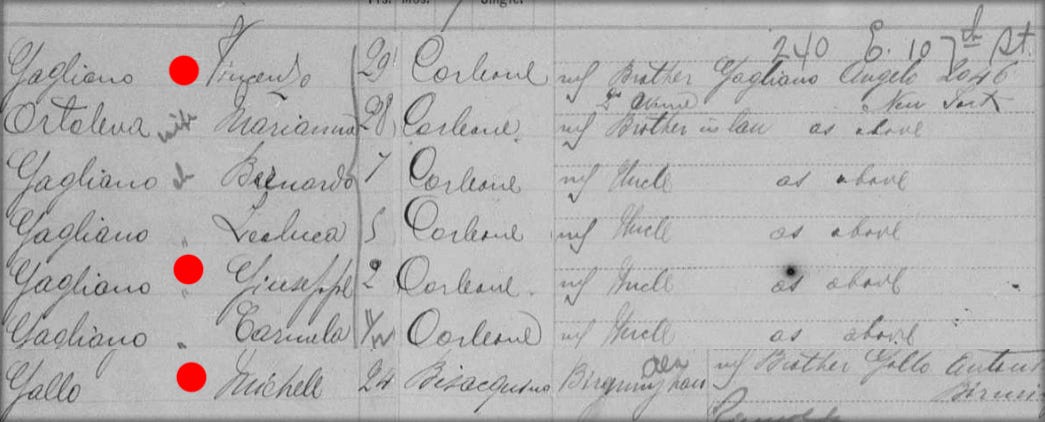 Yrs. Mos. Single.
240 E. 107th St.
Gagliano Vincenzo 29 Corleone NY Brother Gagliano Angelo 2046
2d Avenue New York
Ortoleva wife Marianna 28 Corleone NY Brother in law as above
Gagliano ch Bernardo 7 Corleone NY Uncle as above
Gagliano " Leoluca 5 Corleone NY Uncle as above
Gagliano " Giuseppe 2 Corleone NY Uncle as above
Gagliano " Carmela Corleone NY Uncle as above
Gallo Michele 24 Bisacquino Birmingham Ala Brother Gallo